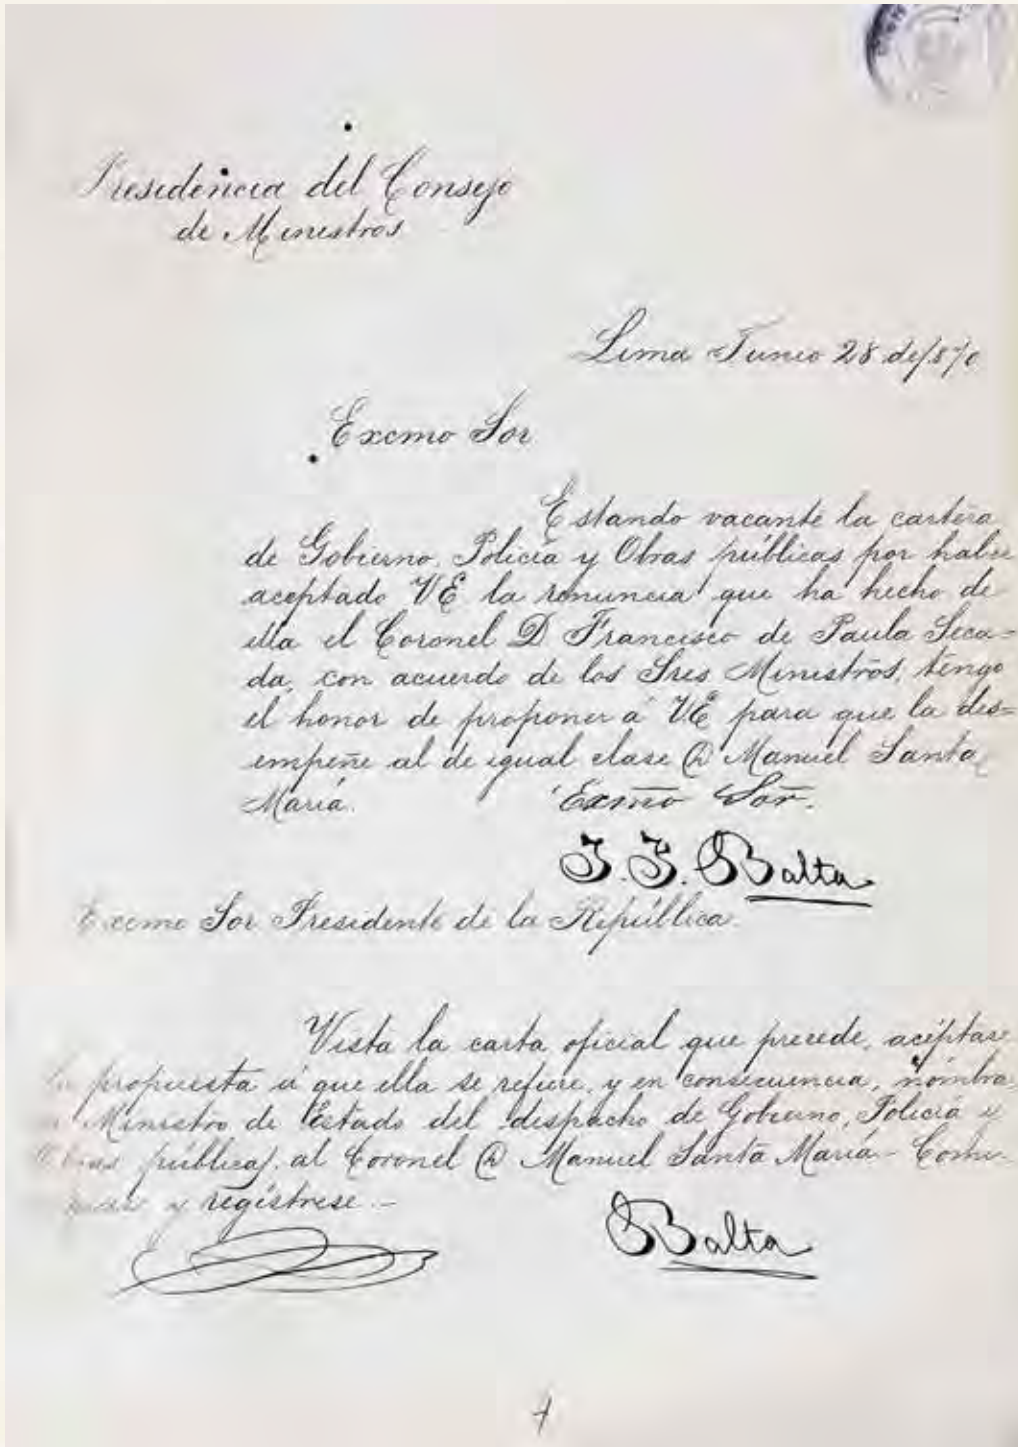 Presidencia del Consejo
de Ministros
Lima Junio 28 de/870
Excmo Sor
Estando vacante la cartera
de Gobierno, Policía y Obras públicas por haber
aceptado VE la renuncia que ha hecho de
ella el Coronel D Francisco de Paula Seca=
da, con acuerdo de los Sres Ministros, tengo
el honor de proponer á VE para que la des=
empeñe al de igual clase D Manuel Santa
María.
Exmo Sor.
J. F. Balta
Excmo Sor Presidente de la República.
Vista la carta oficial que precede, acéptase
la propuesta á que ella se refiere, y en consecuencia, nómbra
Ministro de Estado del despacho de Gobierno, Policía y
Obras públicas, al Coronel D Manuel Santa María - Comu-
y regístrese. -
Balta